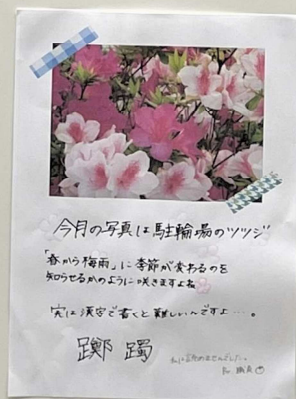 今月の写真は駐輪場のツツジ
「春から梅雨」に季節が変わるのを
知らせるかのように咲きますよね
実は漢字で書くと難しいんですよ…。
躑躅
私は読めませんでした。
by 職員